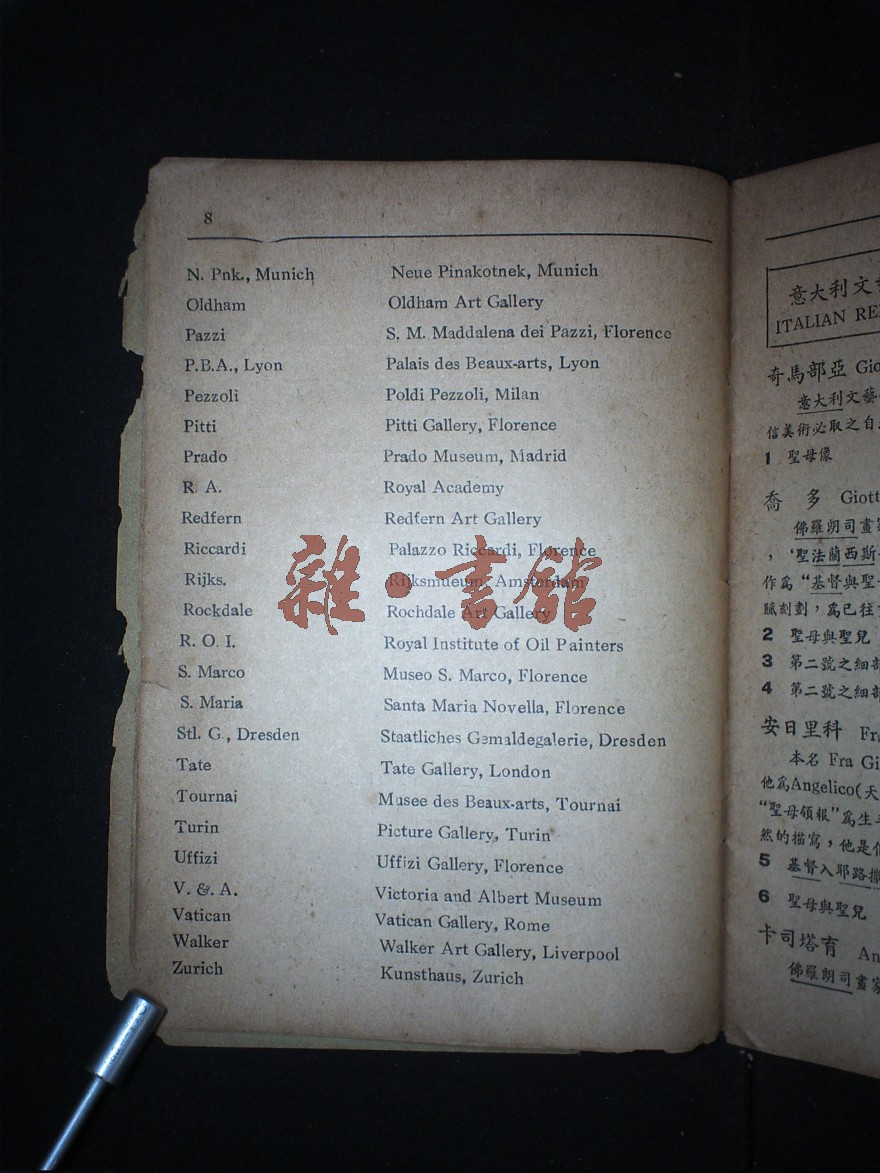 8
N. Pnk., Munich Neue Pinakotnek, Munich
Oldham Oldham Art Gallery
Pazzi S. M. Maddalena dei Pazzi, Florence
P.B.A., Lyon Palais des Beaux-arts, Lyon
Pezzoli Poldi Pezzoli, Milan
Pitti Pitti Gallery, Florence
Prado Prado Museum, Madrid
R. A. Royal Academy
Redfern Redfern Art Gallery
Riccardi Palazzo Riccardi, Florence
Rijks. Rijksmueum, Amsterdam
Rockdale Rochdale Art Gallery
R. O. I. Royal Institute of Oil Painters
S. Marco Museo S. Marco, Florence
S. Maria Santa Maria Novella, Florence
Stl. G., Dresden Staatliches Gemaldegalerie, Dresden
Tate Tate Gallery, London
Tournai Musee des Beaux-arts, Tournai
Turin Picture Gallery, Turin
Uffizi Uffizi Gallery, Florence
V. &. A. Victoria and Albert Museum
Vatican Vatican Gallery, Rome
Walker Walker Art Gallery, Liverpool
Zurich Kunsthaus, Zurich
雜·書館
意大利文
ITALIAN
奇馬部亞 Gio
意大利文藝
信美術必取之自
1 聖母像
喬 多 Giott
佛羅朗司畫家
，‘聖法蘭西斯
作爲“基督與聖母
賦刻劃，爲已往
2 聖母與聖兒
3 第二號之細部
4 第二號之細部
安日里科 Fr
本名 Fra Gi
他爲Angelico(天
“聖母領報”爲生
然的描寫，他是
5 基督入耶路撒
6 聖母與聖兒
卡司塔育 An
佛羅朗司畫家